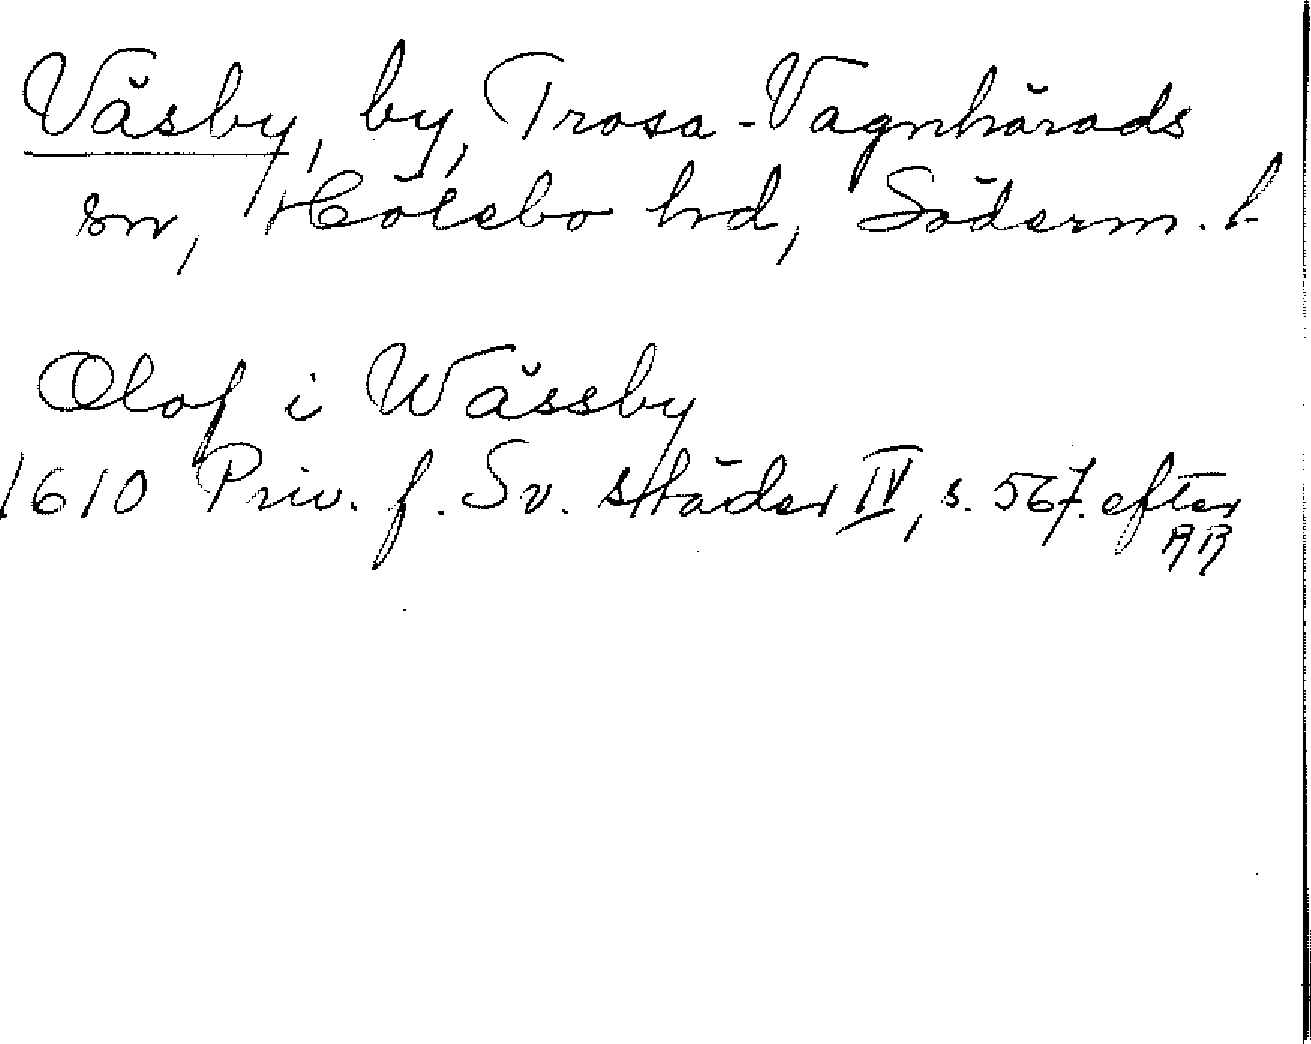 Väsby, by, Trosa-Vagnhärads
sn, Hölebo hd, Söderm. l.
Olof i Wässby
1610 Priv. f. Sv. städer IV, s. 567. efter
RR